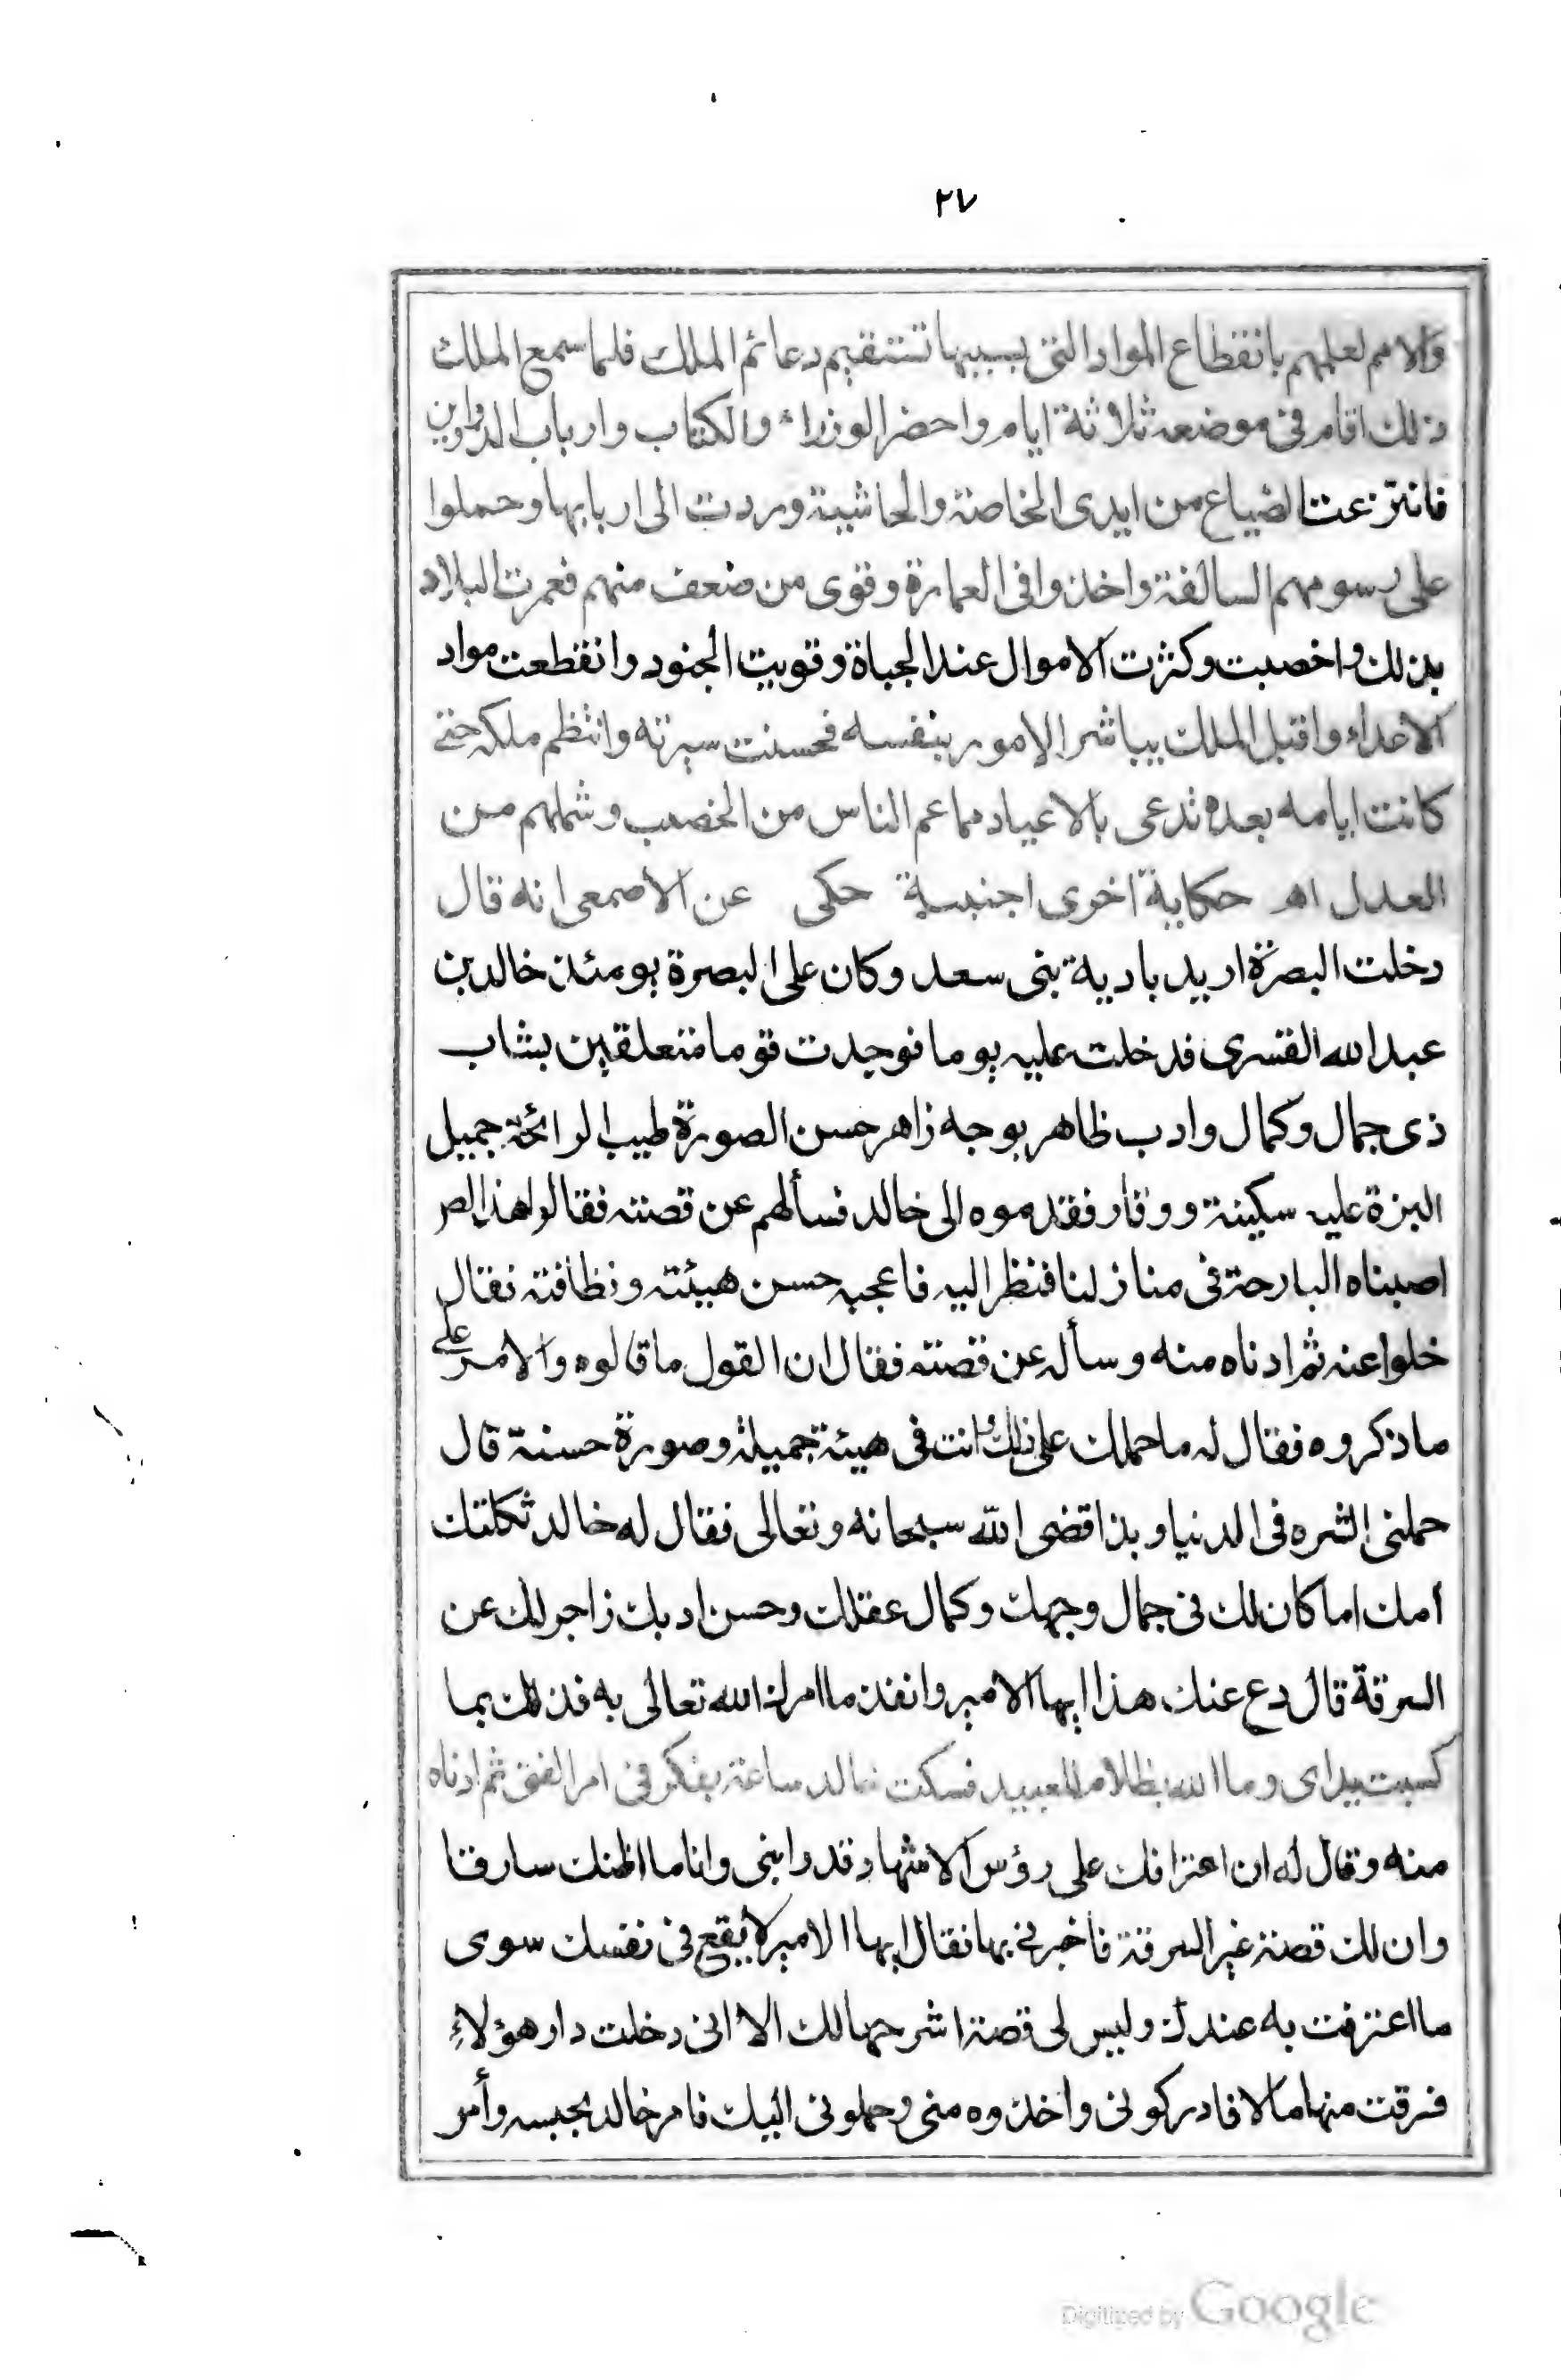 ٢٧
والامم لعلمهم بانقطاع المواد التى بسببها تستقيم دعائم الملك فلما سمع الملك
ذلك اقام فى موضعه ثلاثة ايام واحضر الوزراء والكتاب وارباب الدواوين
فانتزعت الضياع من ايدى الخاصة والحاشية وردت الى اربابها وحملوا
على رسومهم السالفة واخذوا فى العمارة وقوى من ضعف منهم فعمرت البلاد
بذلك واخصبت وكثرت الاموال عند الجباة وقويت الجنود وانقطعت مواد
الاعداء واقبل الملك يباشر الامور بنفسه فحسنت سيرته وانتظم ملكه حتى
كانت ايامه بعده تدعى بالاعياد مما عم الناس من الخصب وشملهم من
العدل اهـ حكاية اخرى اجنبية حكى عن الاصمعى انه قال
دخلت البصرة اريد بادية بنى سعد وكان على البصرة يومئذ خالد بن
عبد الله القسرى فدخلت عليه يوما فوجدت قوما متعلقين بشاب
ذى جمال وكمال وادب ظاهر بوجه زاهر حسن الصورة طيب الرائحة جميل
البزة عليه سكينة ووقار فقدموه الى خالد فسألهم عن قصته فقالوا هذا لص
اصبناه البارحة فى منازلنا فنظر اليه فاعجبه حسن هيئته ونظافته فقال
خلوا عنه ثم ادناه منه وسأله عن قصته فقال ان القول ما قالوه والامر على
ما ذكروه فقال له ما حملك على ذلك وانت فى هيئة جميلة وصورة حسنة قال
حملنى الشره فى الدنيا وبذا قضى الله سبحانه وتعالى فقال له خالد ثكلتك
امك اما كان لك فى جمال وجهك وكمال عقلك وحسن ادبك زاجر لك عن
السرقة قال دع عنك هذا ايها الامير وانفذ ما امرك الله تعالى به فذلك بما
كسبت يداى وما الله بظلام للعبيد فسكت خالد ساعة يفكر فى امر الفتى ثم ادناه
منه وقال له ان اعترافك على رؤس الاشهاد قد رابنى وانا ما اظنك سارقا
وان لك قصة غير السرقة فاخبرنى بها فقال ايها الامير لا يقع فى نفسك سوى
ما اعترفت به عندك وليس لى قصة اشرحها لك الا انى دخلت دار هؤلاء
فسرقت منها مالا فادركونى واخذوه منى وحملونى اليك فامر خالد بحبسه وأمر
Digitized by Google